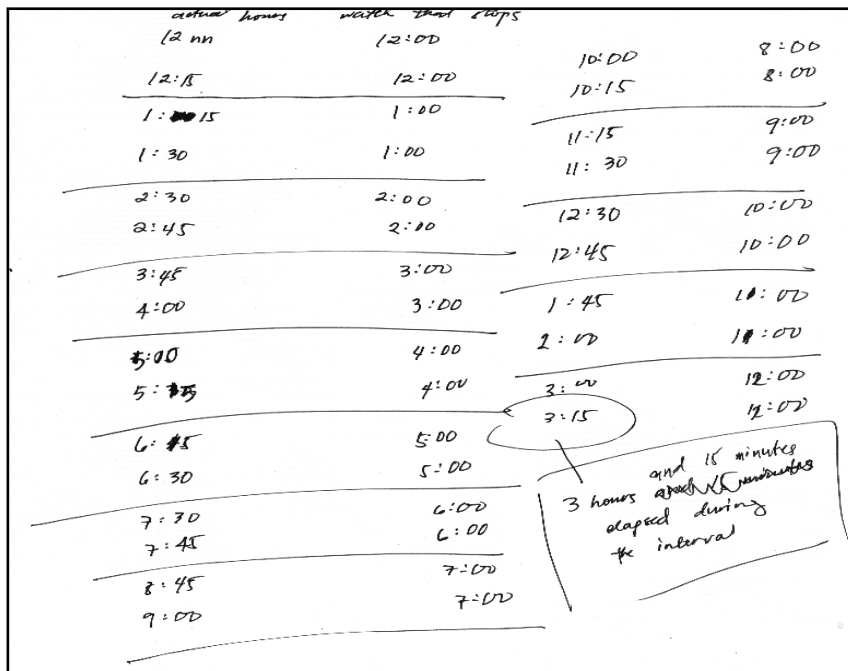 actual hours watch that stops
12 nn 12:00
12:15 12:00
1:15 1:00
1:30 1:00
2:30 2:00
2:45 2:00
3:45 3:00
4:00 3:00
5:00 4:00
5:15 4:00
6:15 5:00
6:30 5:00
7:30 6:00
7:45 6:00
8:45 7:00
9:00 7:00
10:00 8:00
10:15 8:00
11:15 9:00
11:30 9:00
12:30 10:00
12:45 10:00
1:45 11:00
2:00 11:00
3:00 12:00
3:15 12:00
and 15 minutes
3 hours
elapsed during
the interval